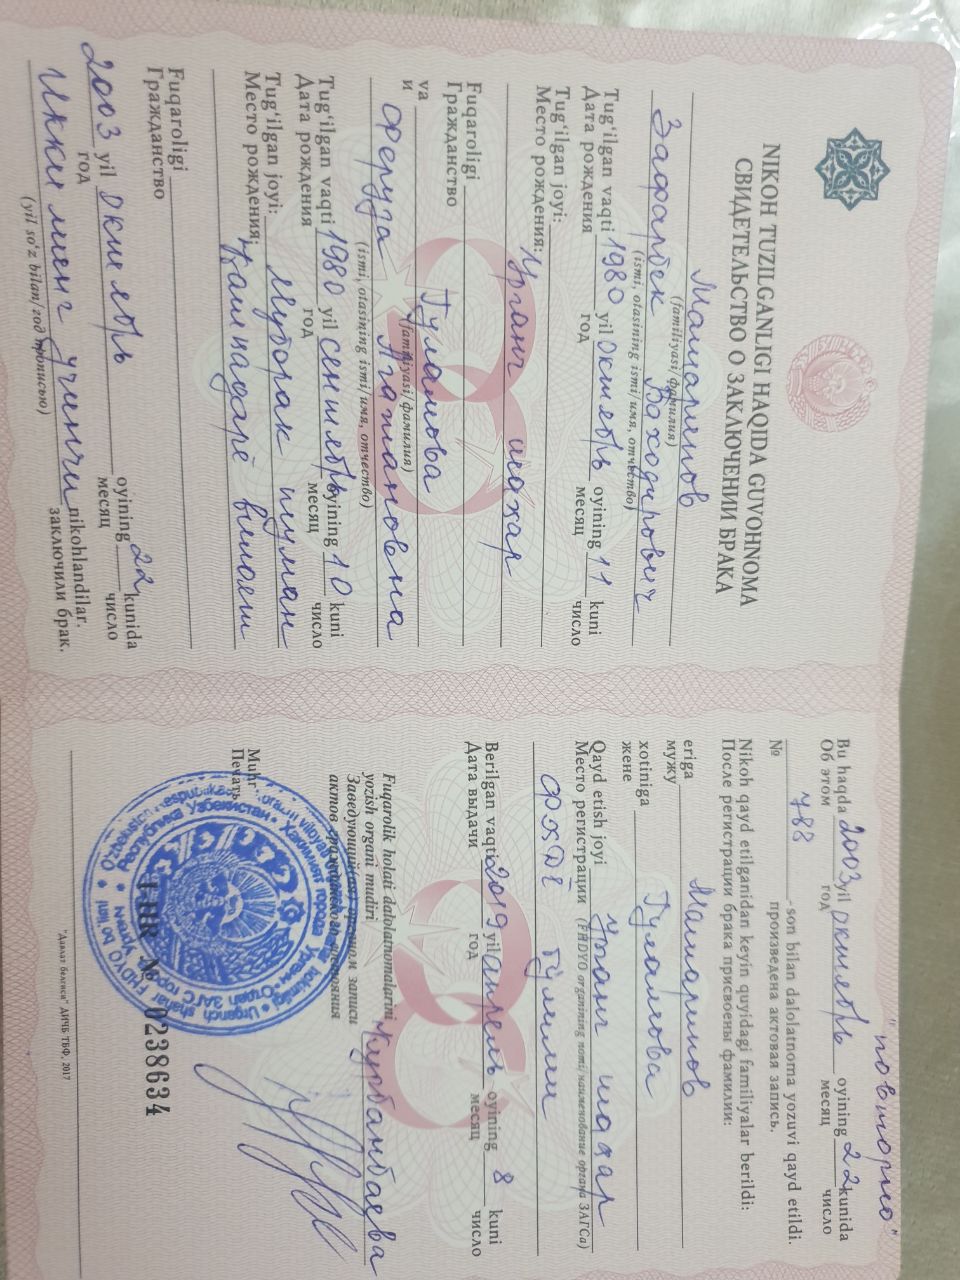 NIKOH TUZILGANLIGI HAQIDA GUVOHNOMA
СВИДЕТЕЛЬСТВО О ЗАКЛЮЧЕНИИ БРАКА
Машарипов
(familiyasi/фамилия)
Зафарбек Баходирович
(ismi, otasining ismi/имя, отчество)
Tug‘ilgan vaqti 1980 yil октябрь oyining 11 kuni
Дата рождения год месяц число
Tug‘ilgan joyi: Урганч шахар
Место рождения:
Fuqaroligi
Гражданство
va Гуламова
и (familiyasi/фамилия)
Феруза Агатановна
(ismi, otasining ismi/имя, отчество)
Tug‘ilgan vaqti 1980 yil сентябрь oyining 10 kuni
Дата рождения год месяц число
Tug‘ilgan joyi: Муборак туман
Место рождения: Қашкадарё вилояти
Fuqaroligi
Гражданство
2003 yil октябрь oyining 22 kunida
год месяц число
Икки минг учинчи nikohlandilar.
(yil so‘z bilan/год прописью) заключили брак.
"повторно"
Bu haqda 2003 yil октябрь oyining 22 kunida
Об этом год месяц число
№ 788 -son bilan dalolatnoma yozuvi qayd etildi.
произведена актовая запись.
Nikoh qayd etilganidan keyin quyidagi familiyalar berildi:
После регистрации брака присвоены фамилии:
eriga Машарипов
мужу
xotiniga Гуламова
жене
Qayd etish joyi Урганч шахар
Место регистрации (FHDYO organining nomi/наименование органа ЗАГСа)
ФХДЁ бўлими
Berilgan vaqti 2019 yil апрель oyining 8 kuni
Дата выдачи год месяц число
Fuqarolik holati dalolatnomalarini
yozish organi mudiri Курбанбаева
Заведующий(ая) органом записи
актов гражданского состояния
Muhr
Печать
№ 0238634
"Давлат белгиси" ДИЧБ ТВФ, 2017